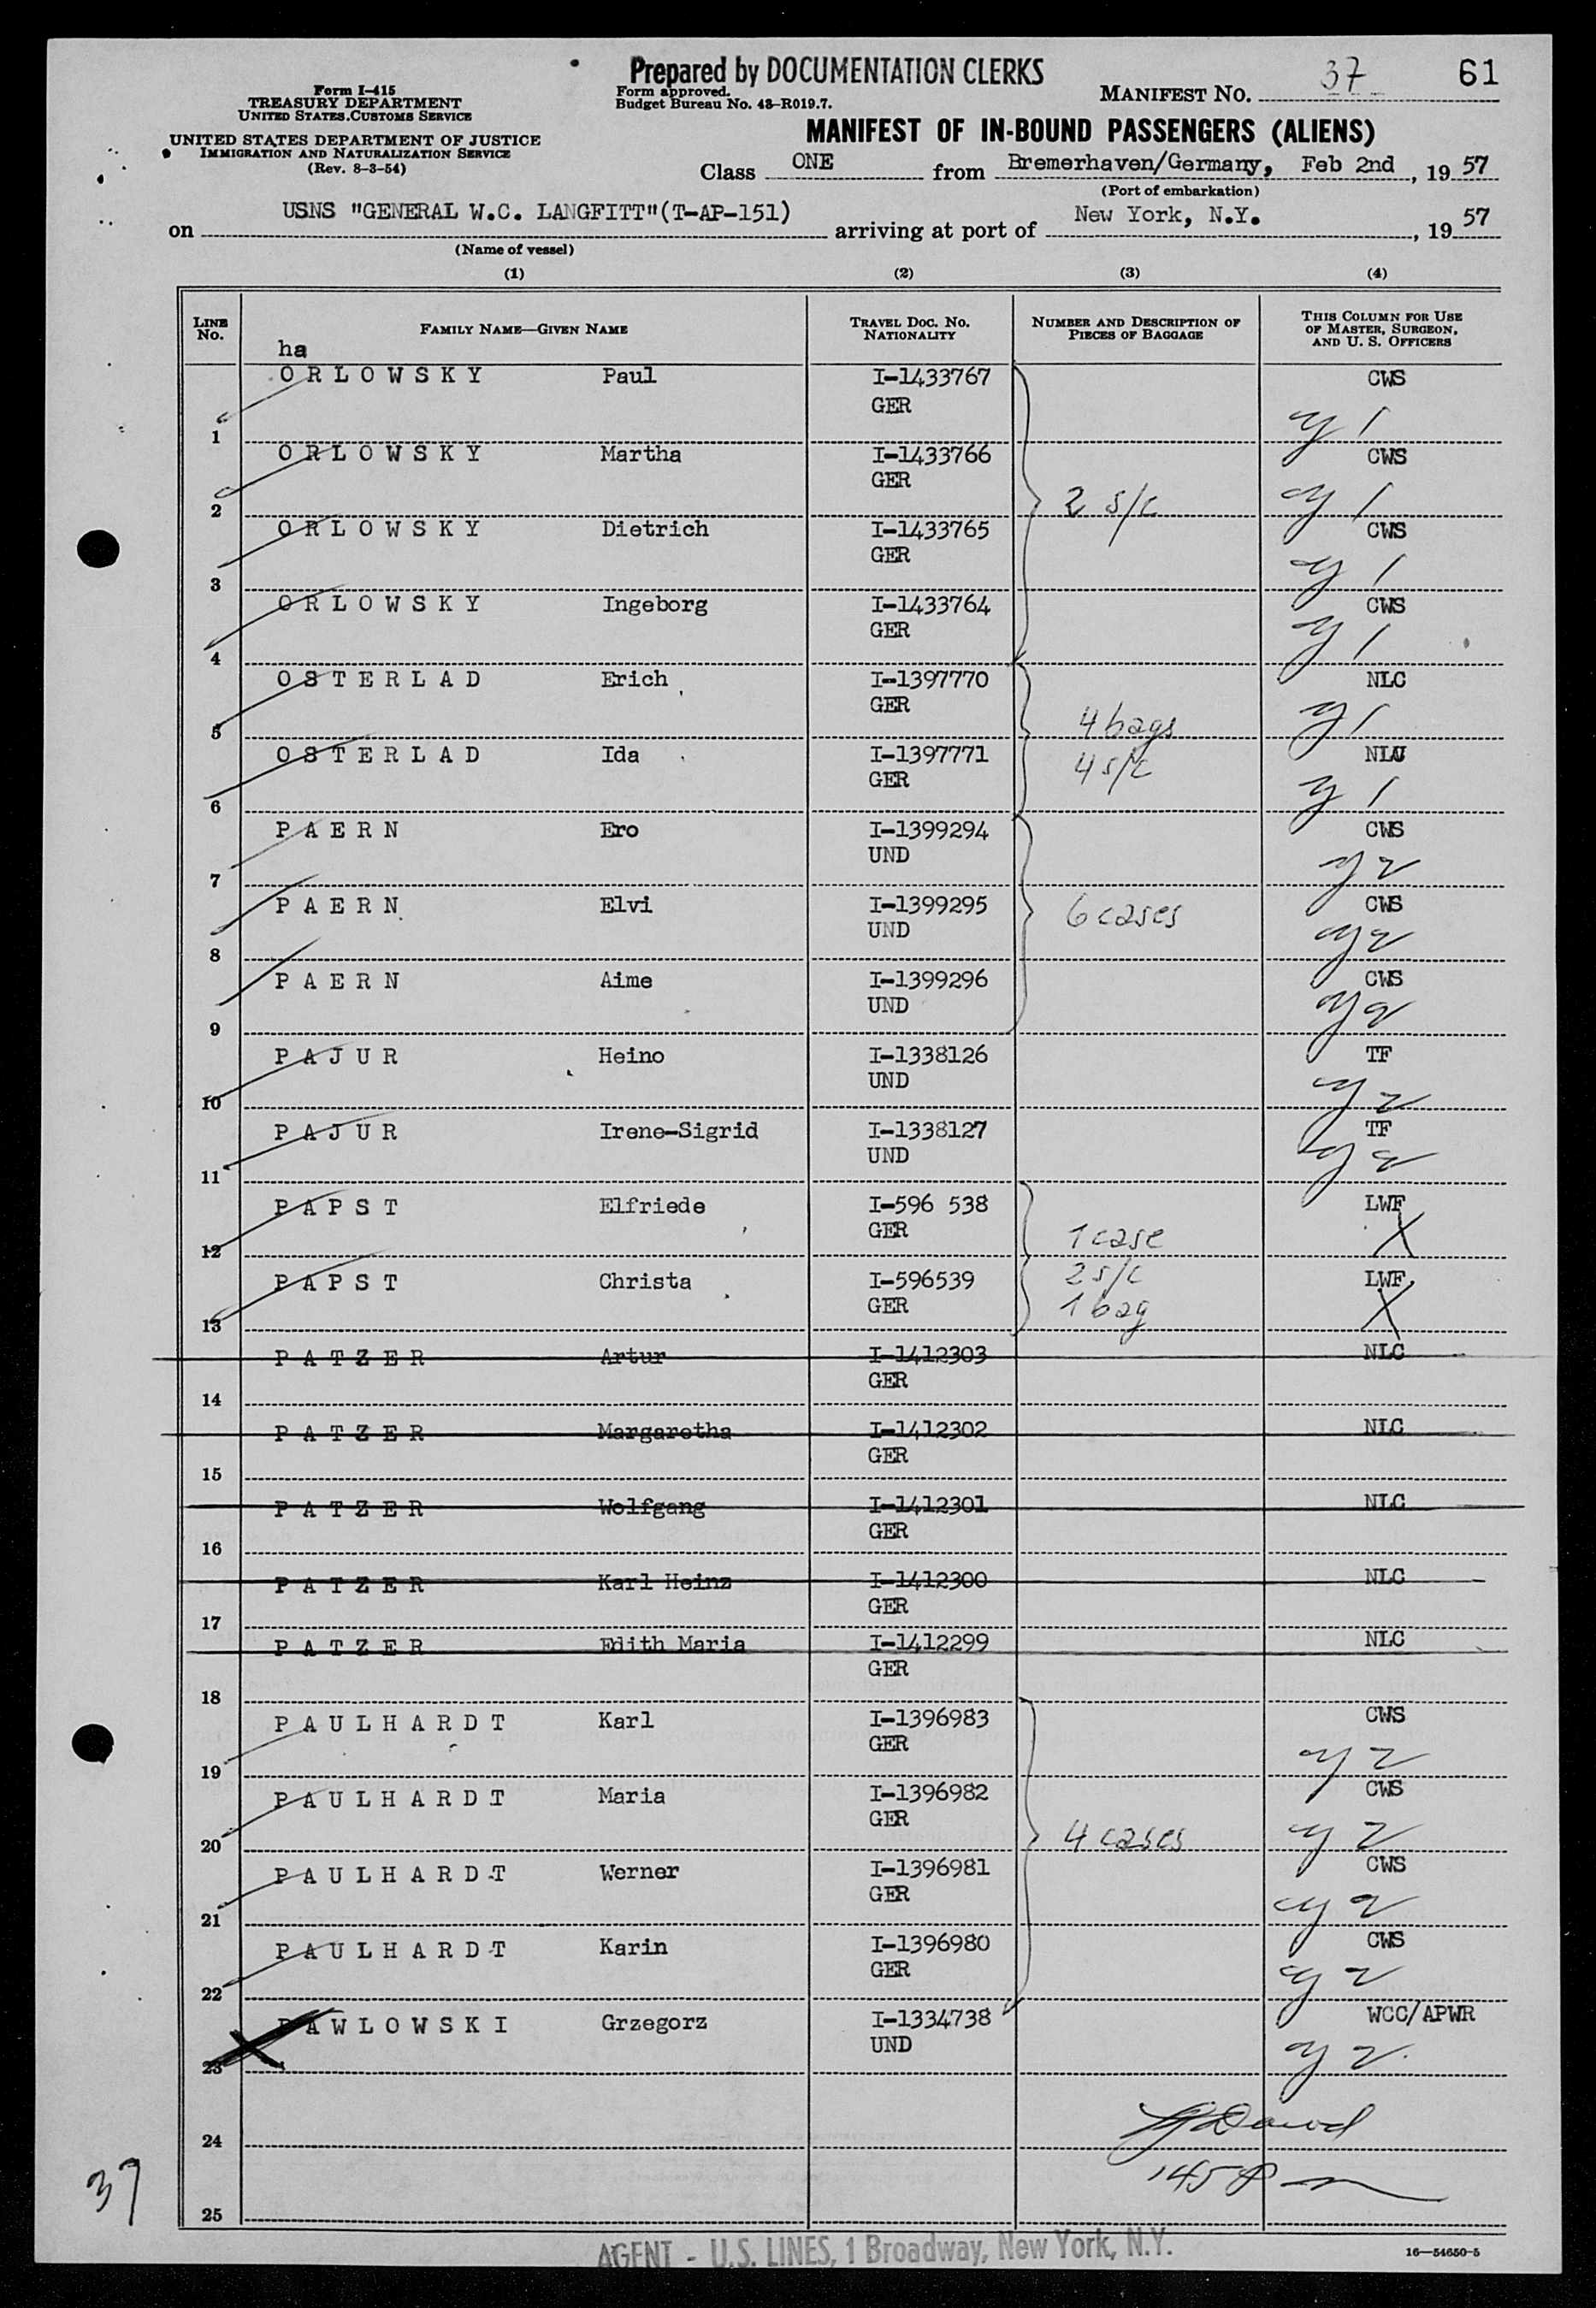 Prepared by DOCUMENTATION CLERKS
Form I-415
TREASURY DEPARTMENT
UNITED STATES CUSTOMS SERVICE
UNITED STATES DEPARTMENT OF JUSTICE
IMMIGRATION AND NATURALIZATION SERVICE
(Rev. 8-3-54)
Form approved.
Budget Bureau No. 43-R019.7.
MANIFEST NO. 37 61
MANIFEST OF IN-BOUND PASSENGERS (ALIENS)
Class ONE from Bremerhaven/Germany, Feb 2nd, 19 57
(Port of embarkation)
on USNS "GENERAL W.C. LANGFITT"(T-AP-151) arriving at port of New York, N.Y., 19 57
(Name of vessel)
(1) (2) (3) (4)
LINE No. FAMILY NAME—GIVEN NAME TRAVEL DOC. NO. NATIONALITY NUMBER AND DESCRIPTION OF PIECES OF BAGGAGE THIS COLUMN FOR USE OF MASTER, SURGEON, AND U. S. OFFICERS
ha
1 ORLOWSKY Paul I-1433767 GER CWS y 1
2 ORLOWSKY Martha I-1433766 GER 2 s/c CWS y 1
3 ORLOWSKY Dietrich I-1433765 GER CWS y 1
4 ORLOWSKY Ingeborg I-1433764 GER CWS y 1
5 OSTERLAD Erich I-1397770 GER 4 bags NLC y 1
6 OSTERLAD Ida I-1397771 GER 4 s/c y 1
7 PAERN Ero I-1399294 UND CWS y 2
8 PAERN Elvi I-1399295 UND 6 cases CWS y 2
9 PAERN Aime I-1399296 UND CWS y 2
10 PAJUR Heino I-1338126 UND TF y 2
11 PAJUR Irene-Sigrid I-1338127 UND TF y 2
12 PAPST Elfriede I-596 538 GER 1 case LWF X
13 PAPST Christa I-596539 GER 2 s/c 1 bag LWF X
14 PATZER Artur I-1412303 GER NLC
15 PATZER Margaretha I-1412302 GER NLC
16 PATZER Wolfgang I-1412301 GER NLC
17 PATZER Karl Heinz I-1412300 GER NLC
18 PATZER Edith Maria I-1412299 GER NLC
19 PAULHARDT Karl I-1396983 GER CWS y 2
20 PAULHARDT Maria I-1396982 GER 4 cases CWS y 2
21 PAULHARDT Werner I-1396981 GER CWS y 2
22 PAULHARDT Karin I-1396980 GER CWS y 2
23 PAWLOWSKI Grzegorz I-1334738 UND WCC/APWR y 2
24
25
37
AGENT - U.S. LINES, 1 Broadway, New York, N.Y.
16—54650-5